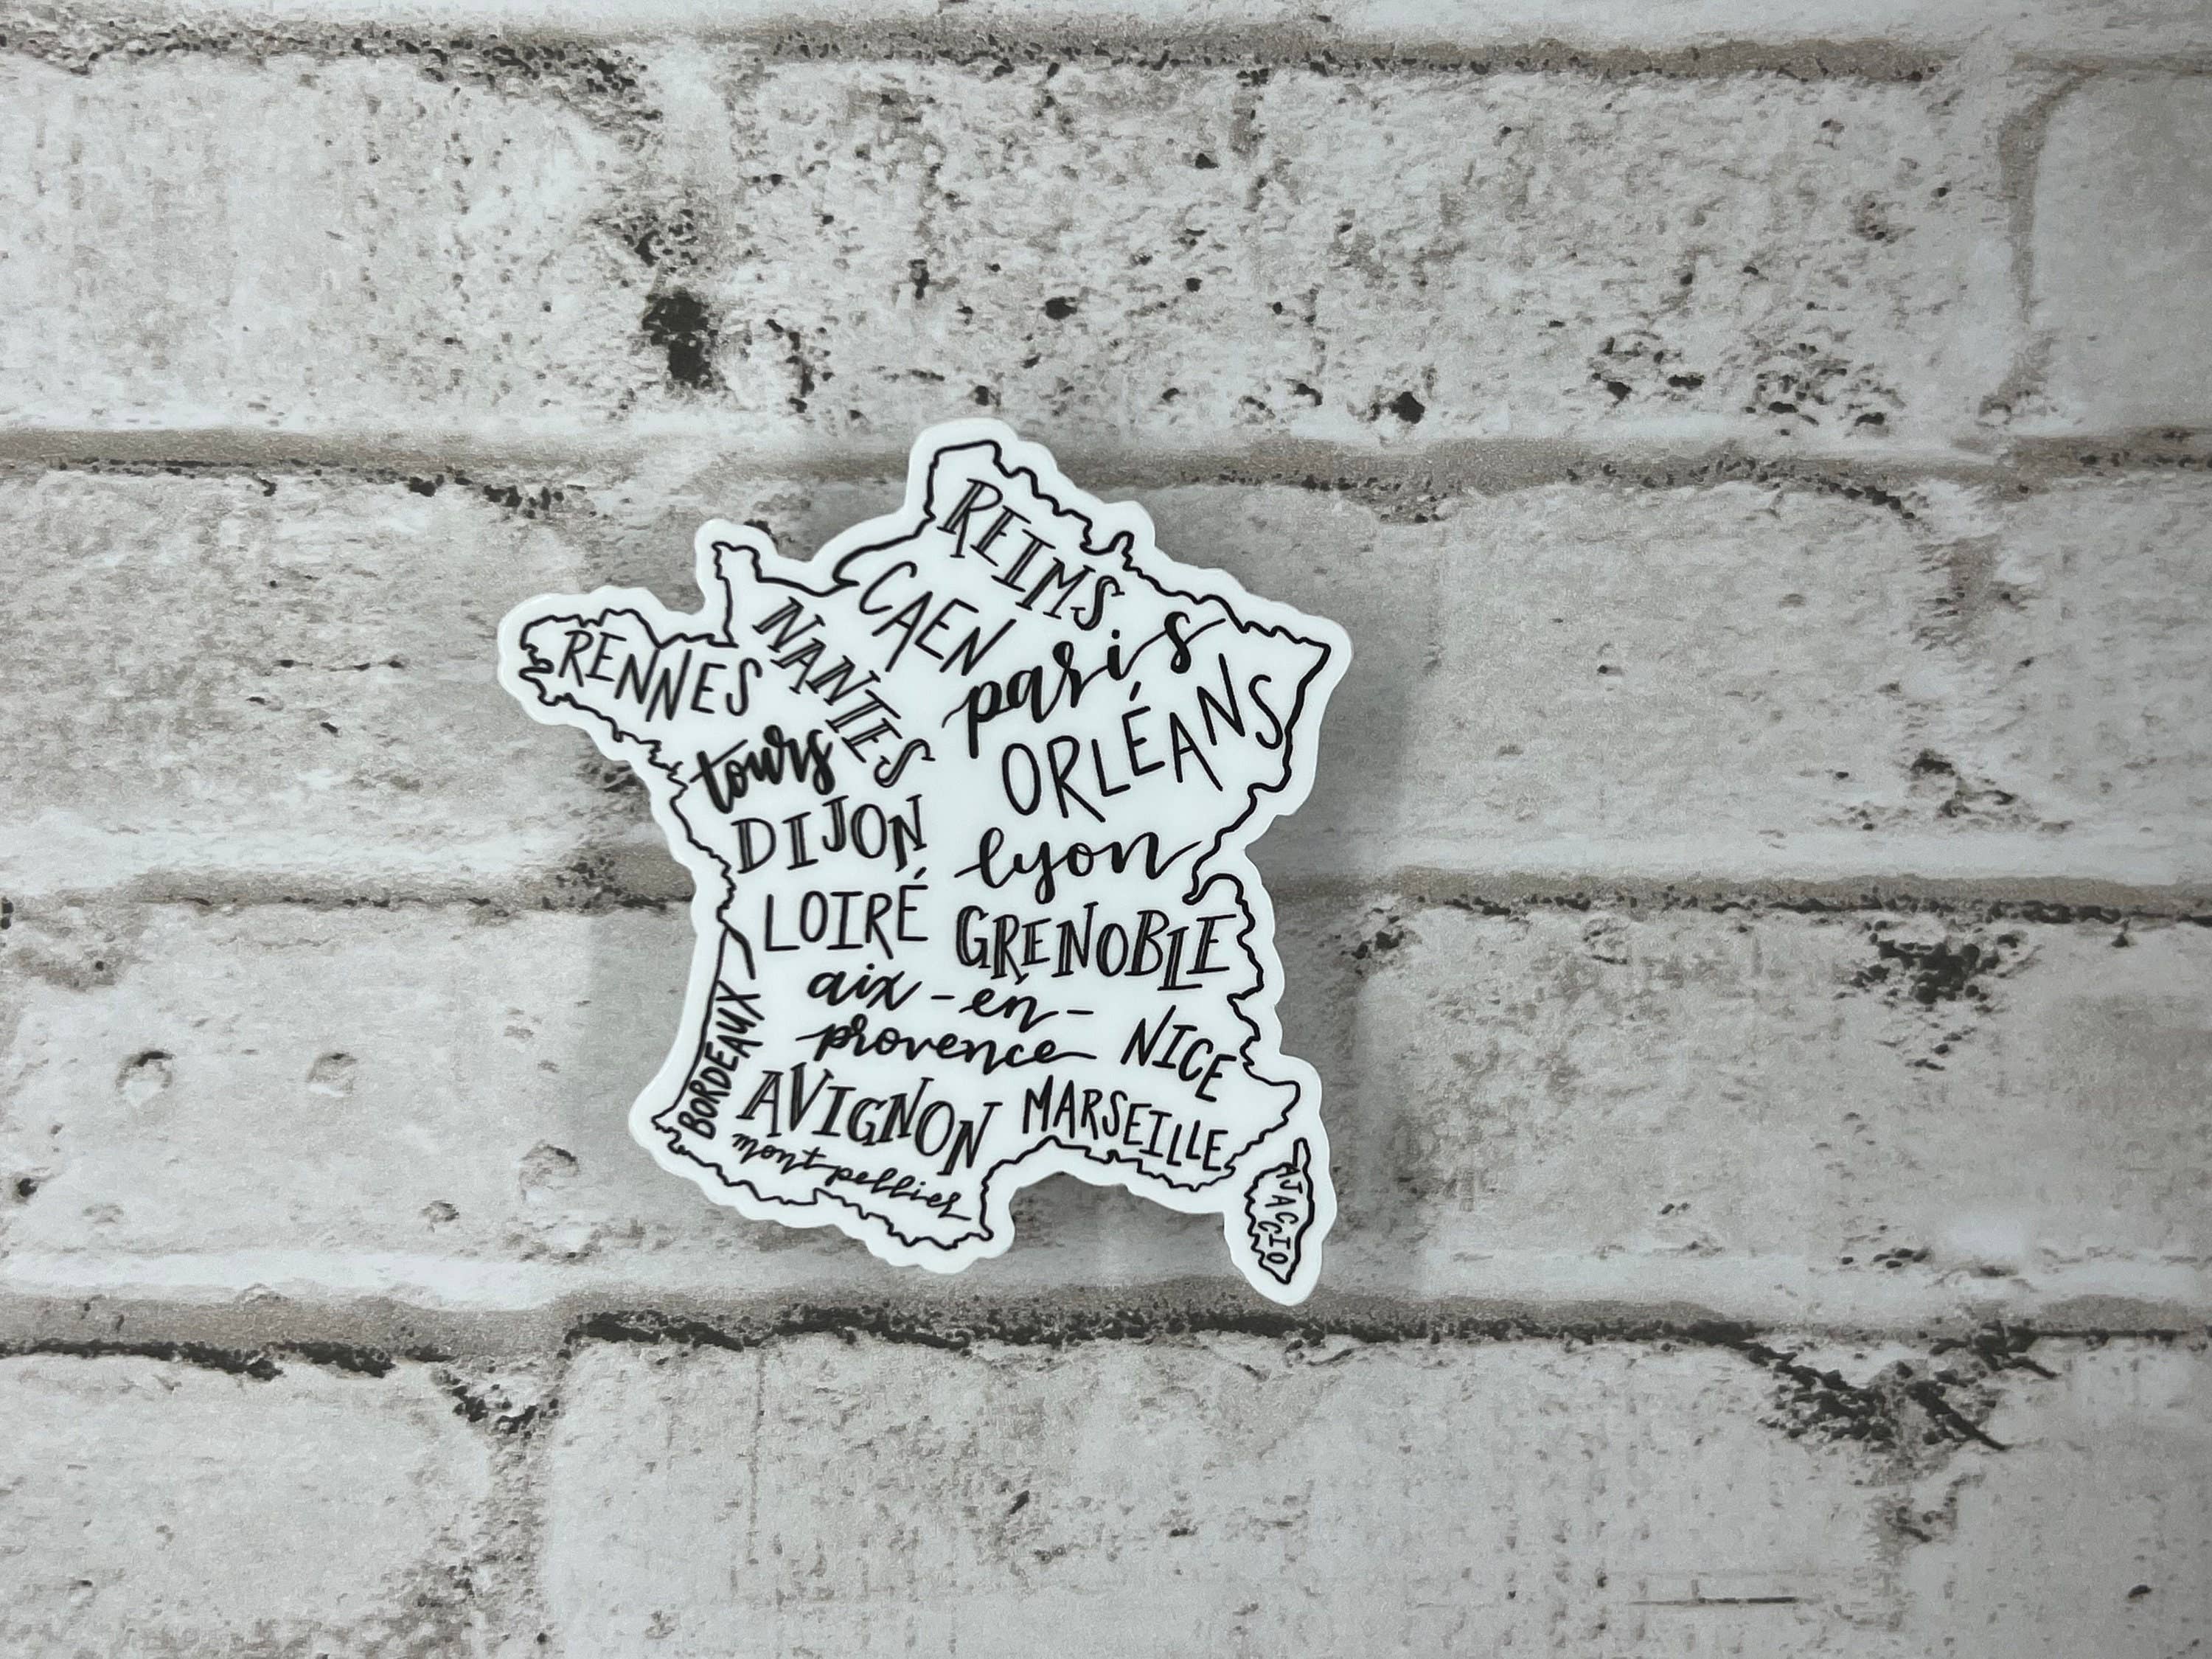 REIMS
CAEN
NANTES
RENNES
paris
ORLÉANS
tours
DIJON
lyon
LOIRÉ
GRENOBLE
aix-en-
provence
NICE
BORDEAUX
AVIGNON
MARSEILLE
montpellier
AJACCIO